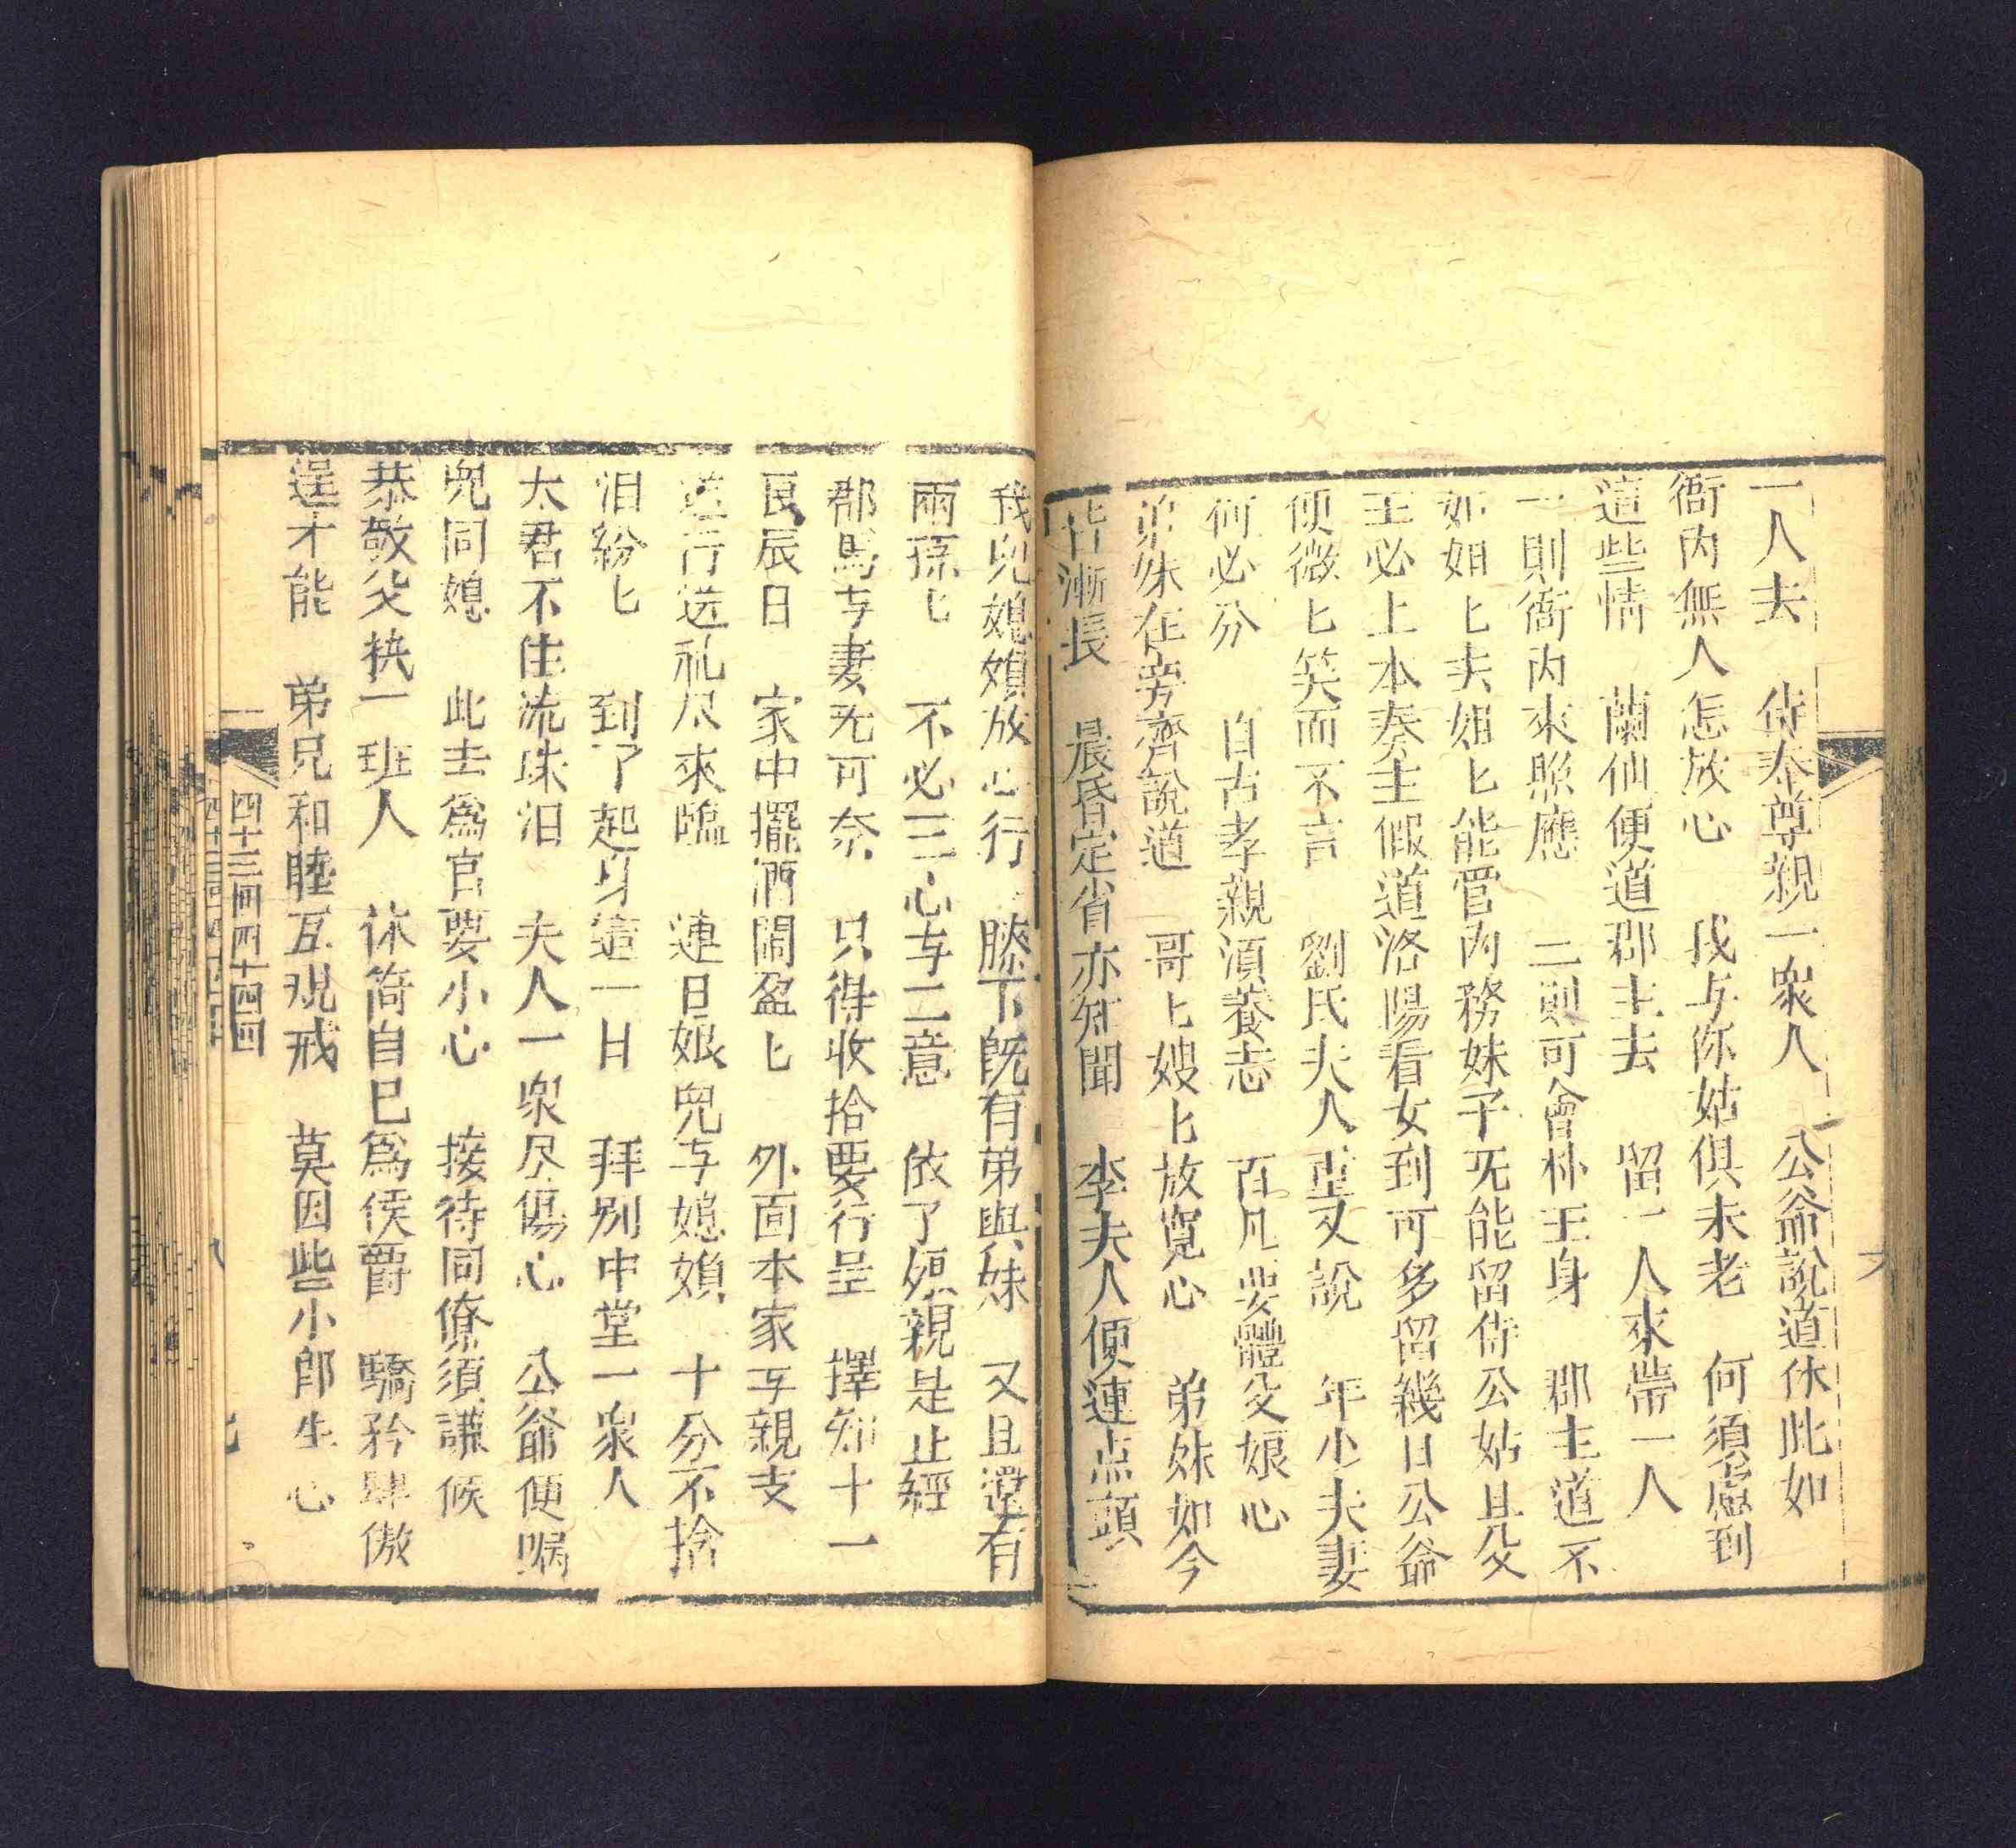 一人去　侍奉尊親一衆人　公爺說道休此如
衙內無人怎放心　我与你姑俱未老　何須慮到
這些情　蘭仙便道郡主去　留一人來帶一人
一則衙內來照應　二則可會朴王身　郡主道不
如姐匕夫姐匕能管內務妹子旡能留侍公姑且父
王必上本奏主假道洛陽看女到可多留幾日公爺
便微匕笑而不言　劉氏夫人亜又說　年少夫妻
何必分　自古孝親須養志　百凡要體父娘心
弟妹在旁齊說道　哥匕嫂匕放寬心　弟妹如今
皆漸長　晨昏定省亦知聞　李夫人便連点頭
我児媳婦放心行　膝下旣有弟與妹　又且還有
兩孫匕　不必三心与二意　依了爾親是正經
郡馬与妻旡可奈　只得收拾要行呈　擇知十一
良辰日　家中擺酒鬧盈匕　外面本家与親支
送行送礼尽來臨　連日娘兒与媳婦　十分不捨
泪紛匕　到了起身這一日　拜别中堂一衆人
太君不住流珠泪　夫人一衆尽傷心　公爺便嘱
児同媳　此去爲官要小心　接待同僚須謙候
恭敬父執一班人　休倚自已爲侯爵　驕矜肆傲
逞才能　弟兄和睦互規戒　莫因些小郎生心
四十三回四十四回